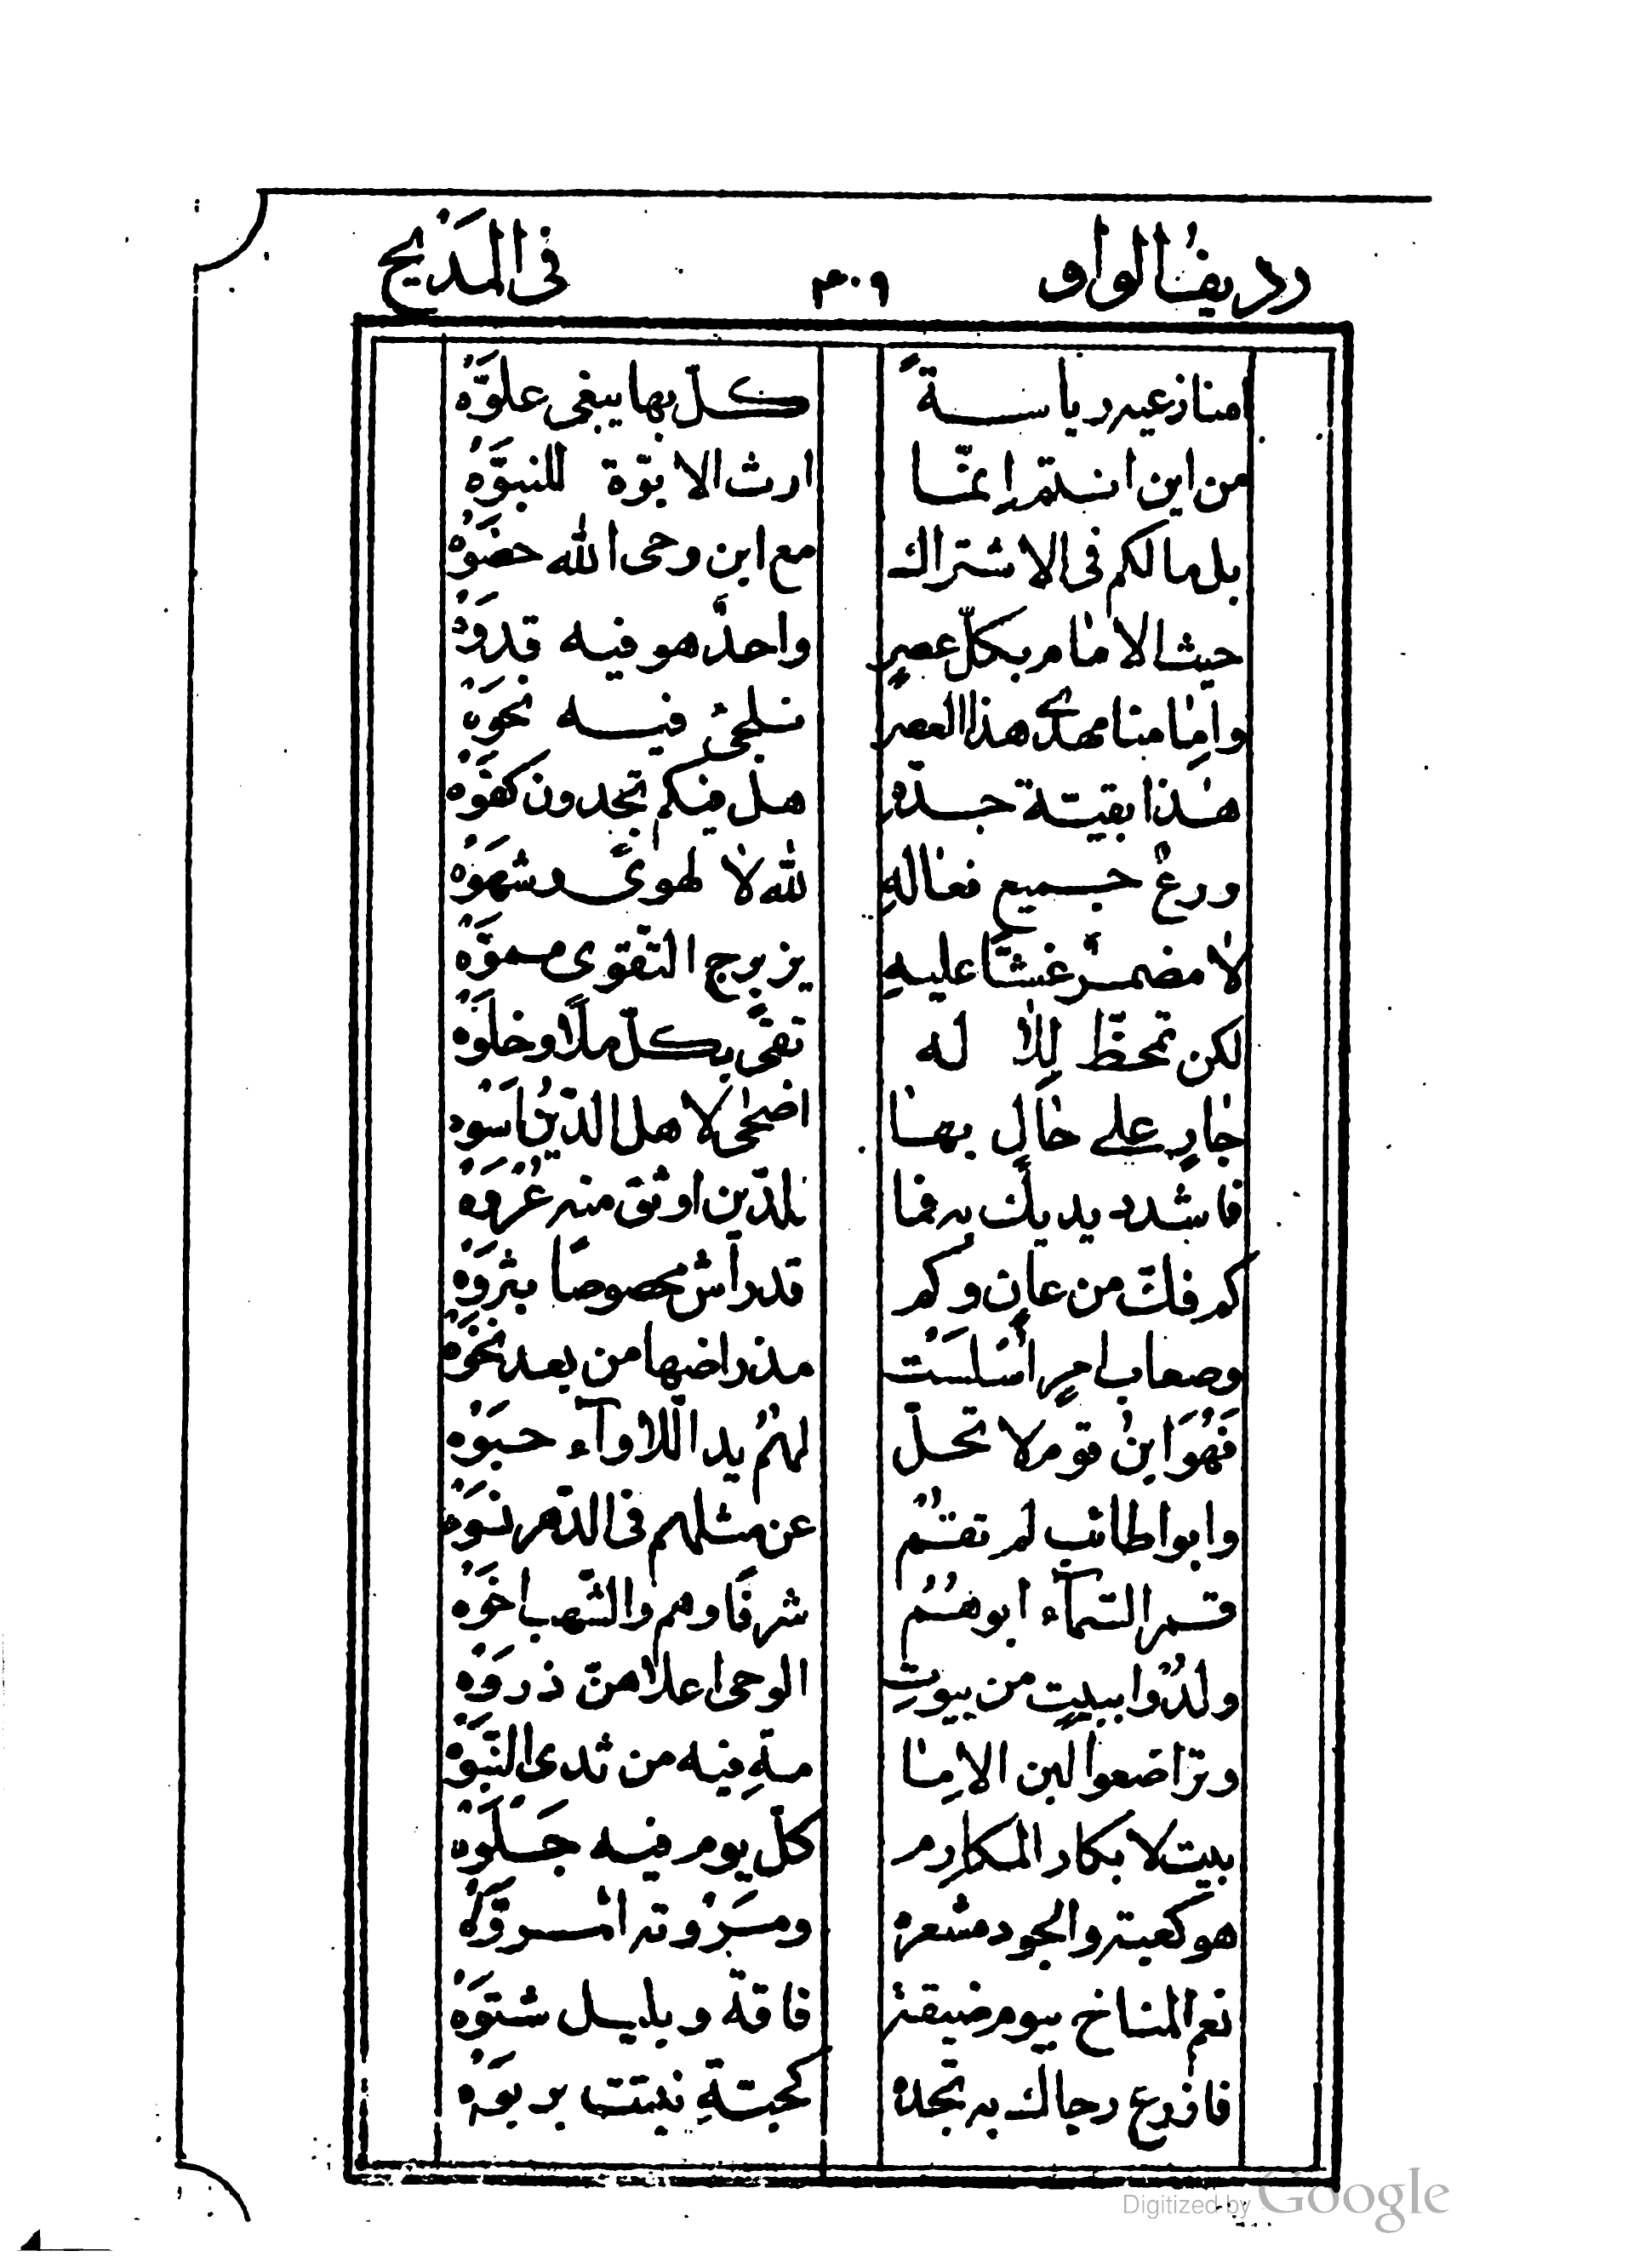 رديف الواو ٣٠٩ في المديح
امنازعيه رياسةً كلّ بها يبغى علوّه
من اين انتم إنّما ارث الابوّة للنبوّه
بل مالكم فى الاشتراك مع ابن وحى الله حضوه
حيث الامام بكلّ عصرٍ واحدٌ هو فيه قدوه
وامامنا مهدىّ هذا العصر نلجئ فيه نحوه
هذا بقيّة جدّه هل فيكم تجدون كفوه
ورعٌ جميع فعاله لله لا لهوىً وشهوه
لا مضمرٌ غشّاً عليه بزبرج التّقوى مموّه
لكن تمحّظ للاله تقىً بكلّ ملاً وخلوه
جارٍ على حالٍ بها اضحى لاهل الدّين اسوه
فاشدد يديك به فما للدّين اوثق منه عُروه
كم فكّ من عانٍ وكم قد راش مخصوصاً بثروه
وصعاب امرٍ أسلست مذ راضها من بعد نخوه
فَهُوَ ابنُ قوم لا تحلّ لهُم يد اللاوآء حبوه
وابوا طائب لم تقُم عن مثلهم فى الدّهر نسوه
قمر السّمآء ابوهُم شرفاً وهم والشّهب اخوه
ولدُوا ببيتٍ من بيوت الوحى اعلا منّ ذروه
وتراضعوا لبن الاما مةِ فيه من ثدى النّبوّه
بيت لابكار المكارم كلّ يوم فيه جَلَوه
هو كعبة والجود مشعره ومَزْوته المروّه
نعم المناخ بيوم ضيقة فاقة وبليل شتوه
فازرع رجاك به تجده كحبّةٍ نبتت بربوه
Digitized by Google